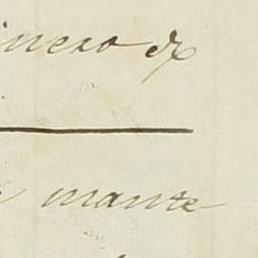 inero de
mante